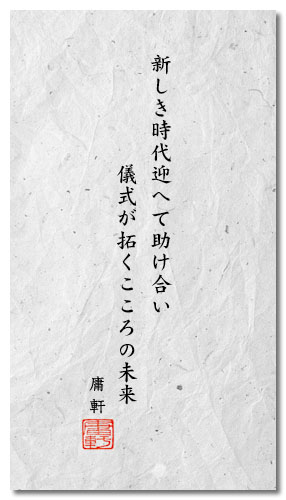 新しき時代迎へて助け合い
儀式が拓くこころの未来
庸軒
庸軒